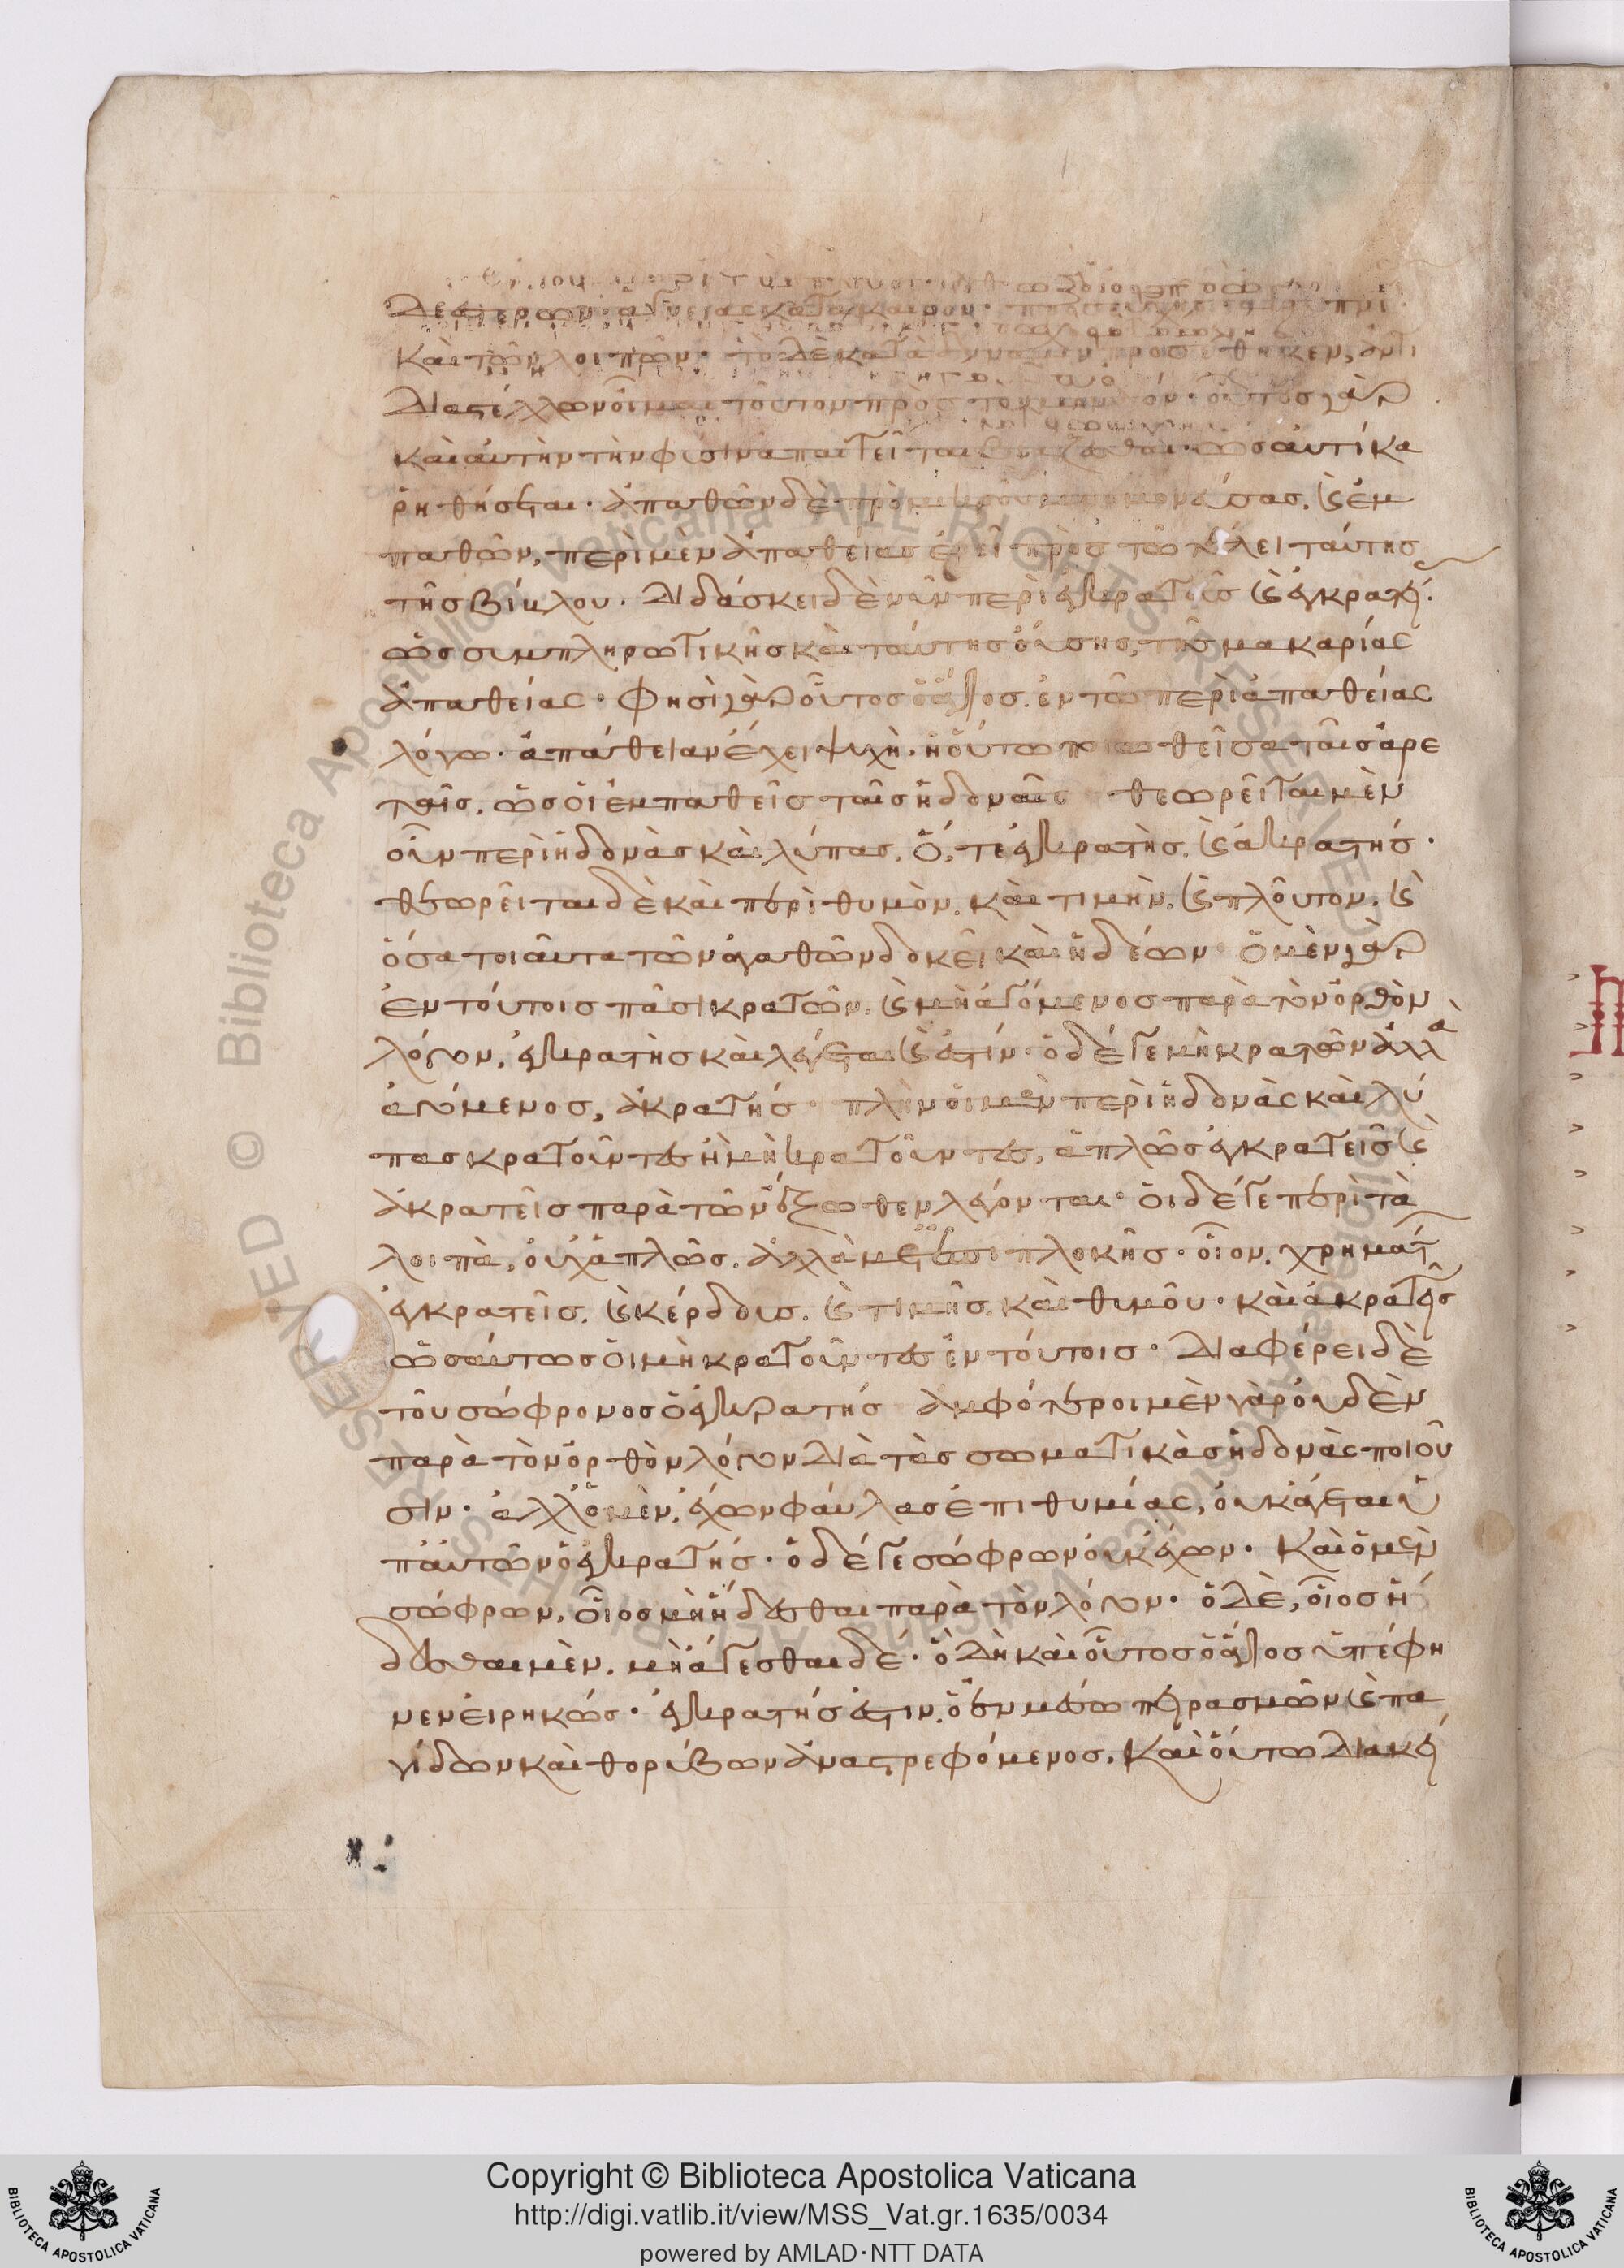 καὶ τῶν λοιπῶν· τὸ δὲ κατὰ δύναμιν προσέθηκεν, ἀντι
καὶ αὐτὴν τὴν φύσιν ἀπαιτεῖται βιάζεσθαι· ὡς αὐτίκα
ῥηθήσεται· ἀπαθῶν δὲ πρὸ μικροῦ μνημονεύσας. καὶ ἐμ
παθῶν, περὶ μὲν ἀπαθείας ἐρεῖ πρὸς τῶ τέλει ταύτης
τῆς βίβλου. διδάσκει δὲ νῦν περὶ ἐγκρατοῦς καὶ ἀκρατοῦς·
ὡς συμπληρωτικῆς καὶ ταύτης οὔσης, τῆς μακαρίας
ἀπαθείας· φησὶ γὰρ οὗτος ὁ ἅγιος. ἐν τῶ περὶ ἀπαθείας
λόγω· ἀπάθειαν ἔχει ψυχὴ. ἡ οὕτω ποιωθεῖσα ταῖς ἀρε
ταῖς. ὡς οἱ ἐμπαθεῖς ταῖς ἡδοναῖς· θεωρεῖται μὲν
οὖν περὶ ἡδονὰς καὶ λύπας. ὅ, τε ἐγκρατὴς. καὶ ἀκρατής·
θεωρεῖται δὲ καὶ περὶ θυμὸν. καὶ τιμὴν. καὶ πλοῦτον. καὶ
ὅσα τοιαῦτα τῶν ἀγαθῶν δοκεῖ καὶ ἡδέων· ὁ μὲν γὰρ
ἐν τούτοις πᾶσι κρατῶν. καὶ μὴ ἀγόμενος παρὰ τὸν ὀρθὸν
λόγον, ἐγκρατὴς καὶ λέγεται καὶ ἔστιν· ὁ δέ γε μὴ κρατῶν ἀλλὰ
ἀγόμενος, ἀκρατής· πλὴν οἱ μὲν περὶ ἡδονὰς καὶ λύ
πας κρατοῦντες ἢ μὴ κρατοῦντες, ἁπλῶς ἐγκρατεῖς καὶ
ἀκρατεῖς παρὰ τῶν ἔξωθεν λέγονται· οἱ δέ γε περὶ τὰ
λοιπὰ, οὐχ ἁπλῶς. ἀλλὰ μετ' ἐπιπλοκῆς· οἷον, χρημάτων
ἐγκρατεῖς. καὶ κέρδους. καὶ τιμῆς. καὶ θυμοῦ· καὶ ἀκρατεῖς
ὡσαύτως οἱ μὴ κρατοῦντες ἐν τούτοις· διαφέρει δὲ
τοῦ σώφρονος ὁ ἐγκρατής· ἀμφότεροι μὲν γὰρ οὐδὲν
παρὰ τὸν ὀρθὸν λόγον διὰ τὰς σωματικὰς ἡδονὰς ποιοῦ
σιν· ἀλλ' ὁ μὲν, ἔχων φαύλας ἐπιθυμίας, οὐκ ἄγεται ὑ
π' αὐτῶν ὁ ἐγκρατής· ὁ δέ γε σώφρων οὐκ ἔχων· καὶ ὁ μὲν
σώφρων, οἷος μὴ ἥδεσθαι παρὰ τὸν λόγον· ὁ δὲ, οἷος ἥ
δεσθαι μὲν. μὴ ἄγεσθαι δέ· ὃ δὴ καὶ οὗτος ὁ ἅγιος ὑπέφη
νεν εἰρηκώς· ἐγκρατής ἐστιν. ὁ ἐν μέσω πειρασμῶν καὶ πα
γίδων καὶ θορύβων ἀναστρεφόμενος. καὶ οὕτω διακεί
Copyright © Biblioteca Apostolica Vaticana
http://digi.vatlib.it/view/MSS_Vat.gr.1635/0034
powered by AMLAD·NTT DATA